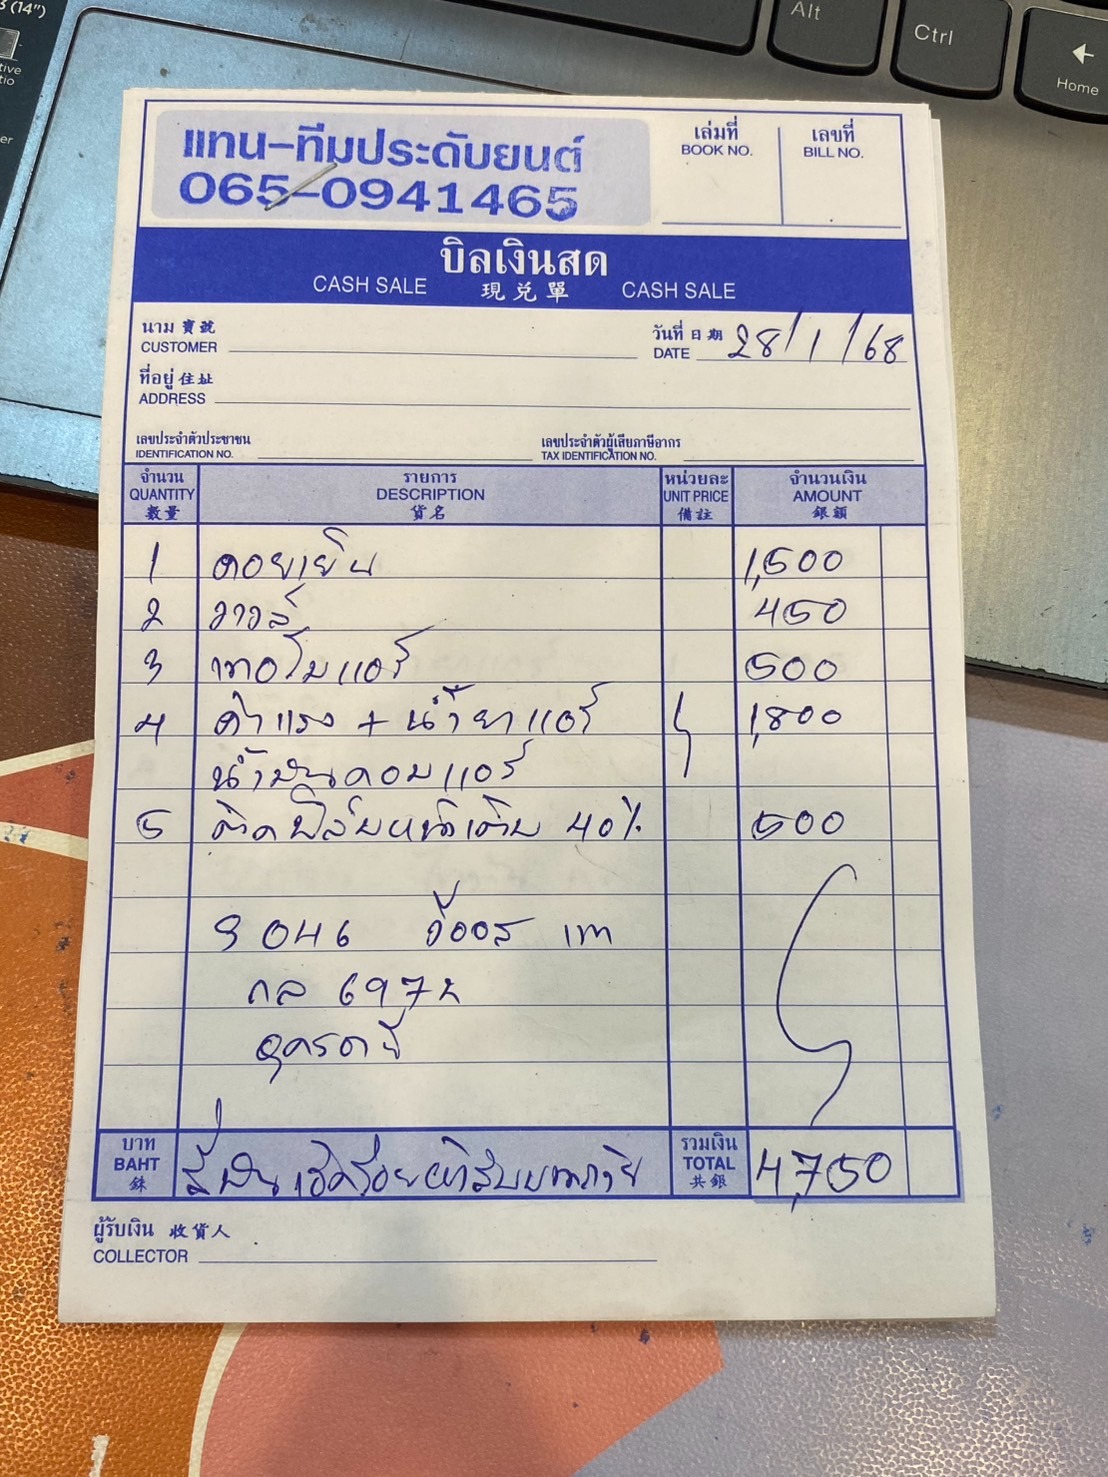 แทน-ทีมประดับยนต์
065-0941465
เล่มที่
BOOK NO.
เลขที่
BILL NO.
บิลเงินสด
CASH SALE 現兌單 CASH SALE
นาม 寶號
CUSTOMER
วันที่ 日期
DATE 28/1/68
ที่อยู่ 住址
ADDRESS
เลขประจำตัวประชาชน
IDENTIFICATION NO.
เลขประจำตัวผู้เสียภาษีอากร
TAX IDENTIFICATION NO.
จำนวน รายการ หน่วยละ จำนวนเงิน
QUANTITY DESCRIPTION UNIT PRICE AMOUNT
數量 貨名 備註 銀額
1 คอยเย็น 1,500
2 วาวล์ 450
3 เทอโมแอร์ 500
4 ค่าแรง + น้ำยาแอร์ 1,800
น้ำมันคอมแอร์
5 ติดฟิล์มหน้าเต็ม 40% 500
9046 วีออส เทา
กล 697
อุดรธานี
บาท
BAHT
銖
สี่พันเจ็ดร้อยห้าสิบบาทถ้วย
รวมเงิน
TOTAL
共銀
4,750
ผู้รับเงิน 收貨人
COLLECTOR
Alt
Ctrl
Home
(14")